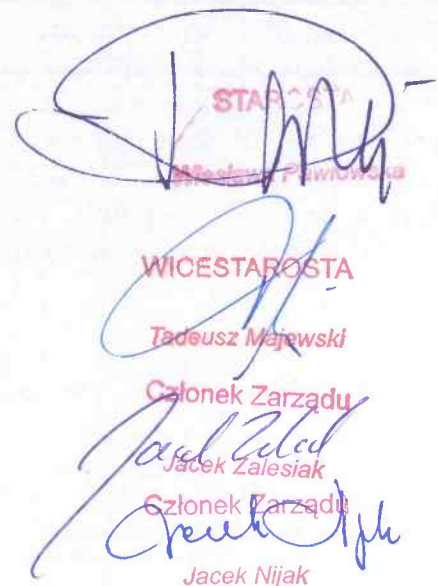 STAROSTA
Wiesława Pawłowska
WICESTAROSTA
Tadeusz Majewski
Członek Zarządu
Jacek Zalesiak
Członek Zarządu
Jacek Nijak